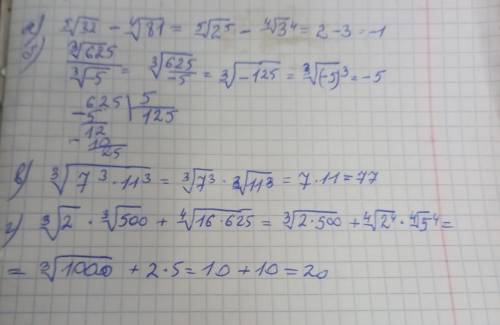 а) ⁵√32 - ⁴√81 = ⁵√2⁵ - ⁴√3⁴ = 2 - 3 = -1
б) ³√625 / ³√-5 = ³√(625/-5) = ³√-125 = ³√(-5)³ = -5
-625 | 5
5 | 125
12
-10
25
в) ³√(7³ · 11³) = ³√7³ · ³√11³ = 7 · 11 = 77
г) ³√2 · ³√500 + ⁴√(16 · 625) = ³√(2 · 500) + ⁴√2⁴ · ⁴√5⁴ =
= ³√1000 + 2 · 5 = 10 + 10 = 20